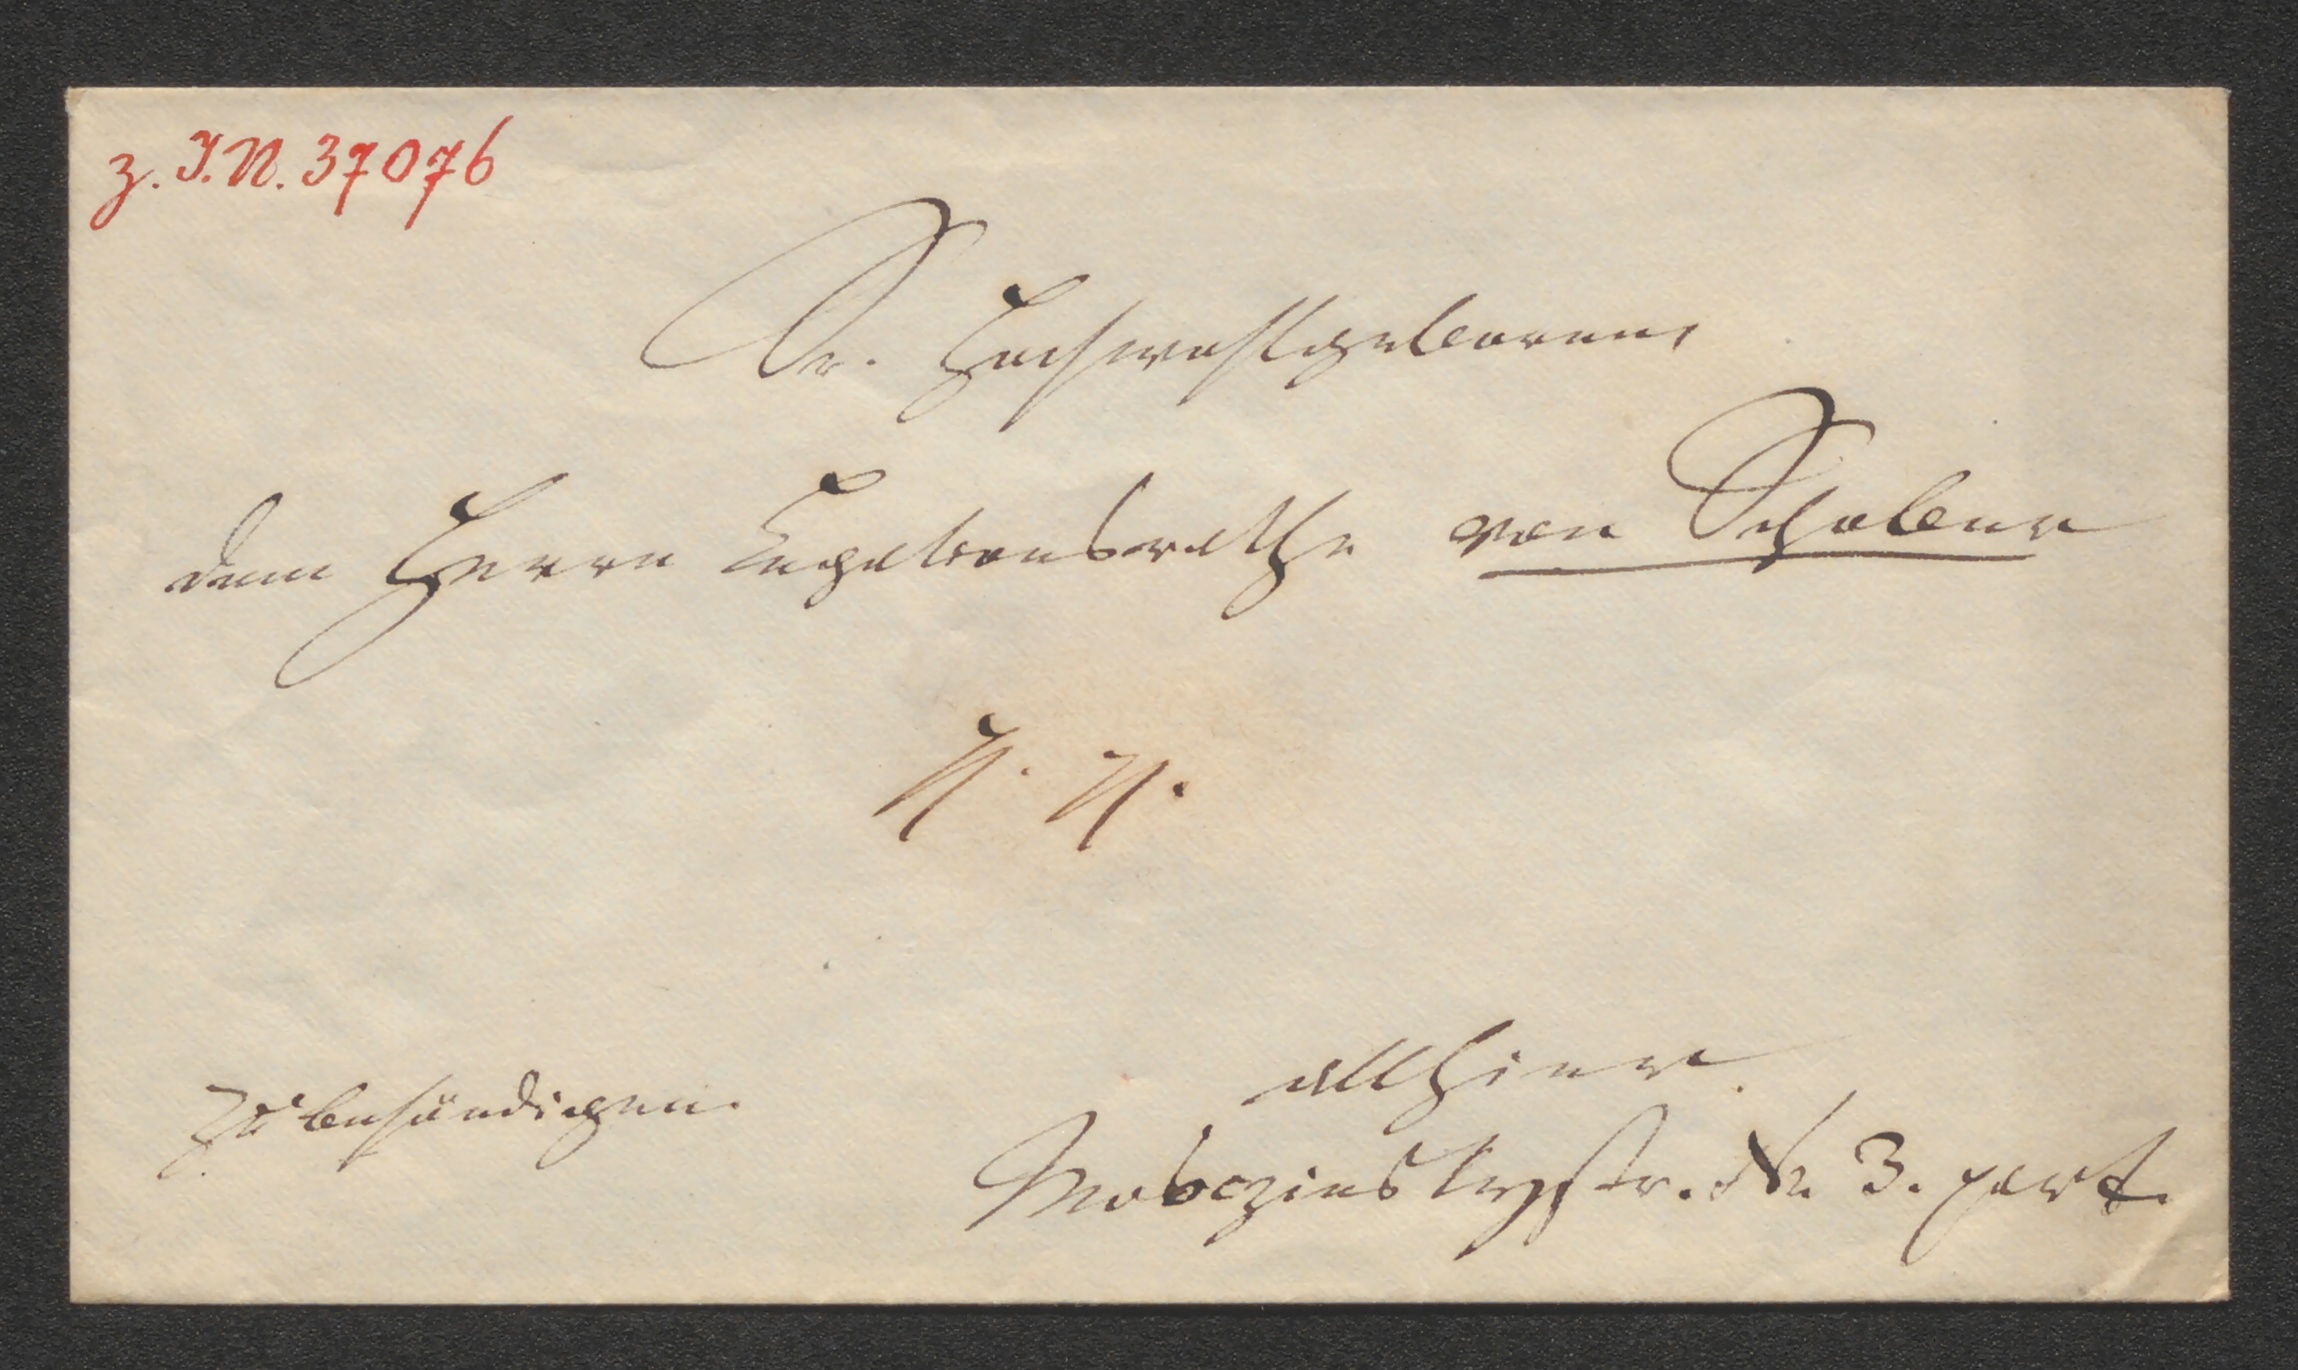 z. I.N. 37076
Sr. Hochwohlgeboren,
dem Herrn Legationsrathe von Schober
H. H.
allhier.
zu behändigen.
Mosczinskystr. No. 3. part.